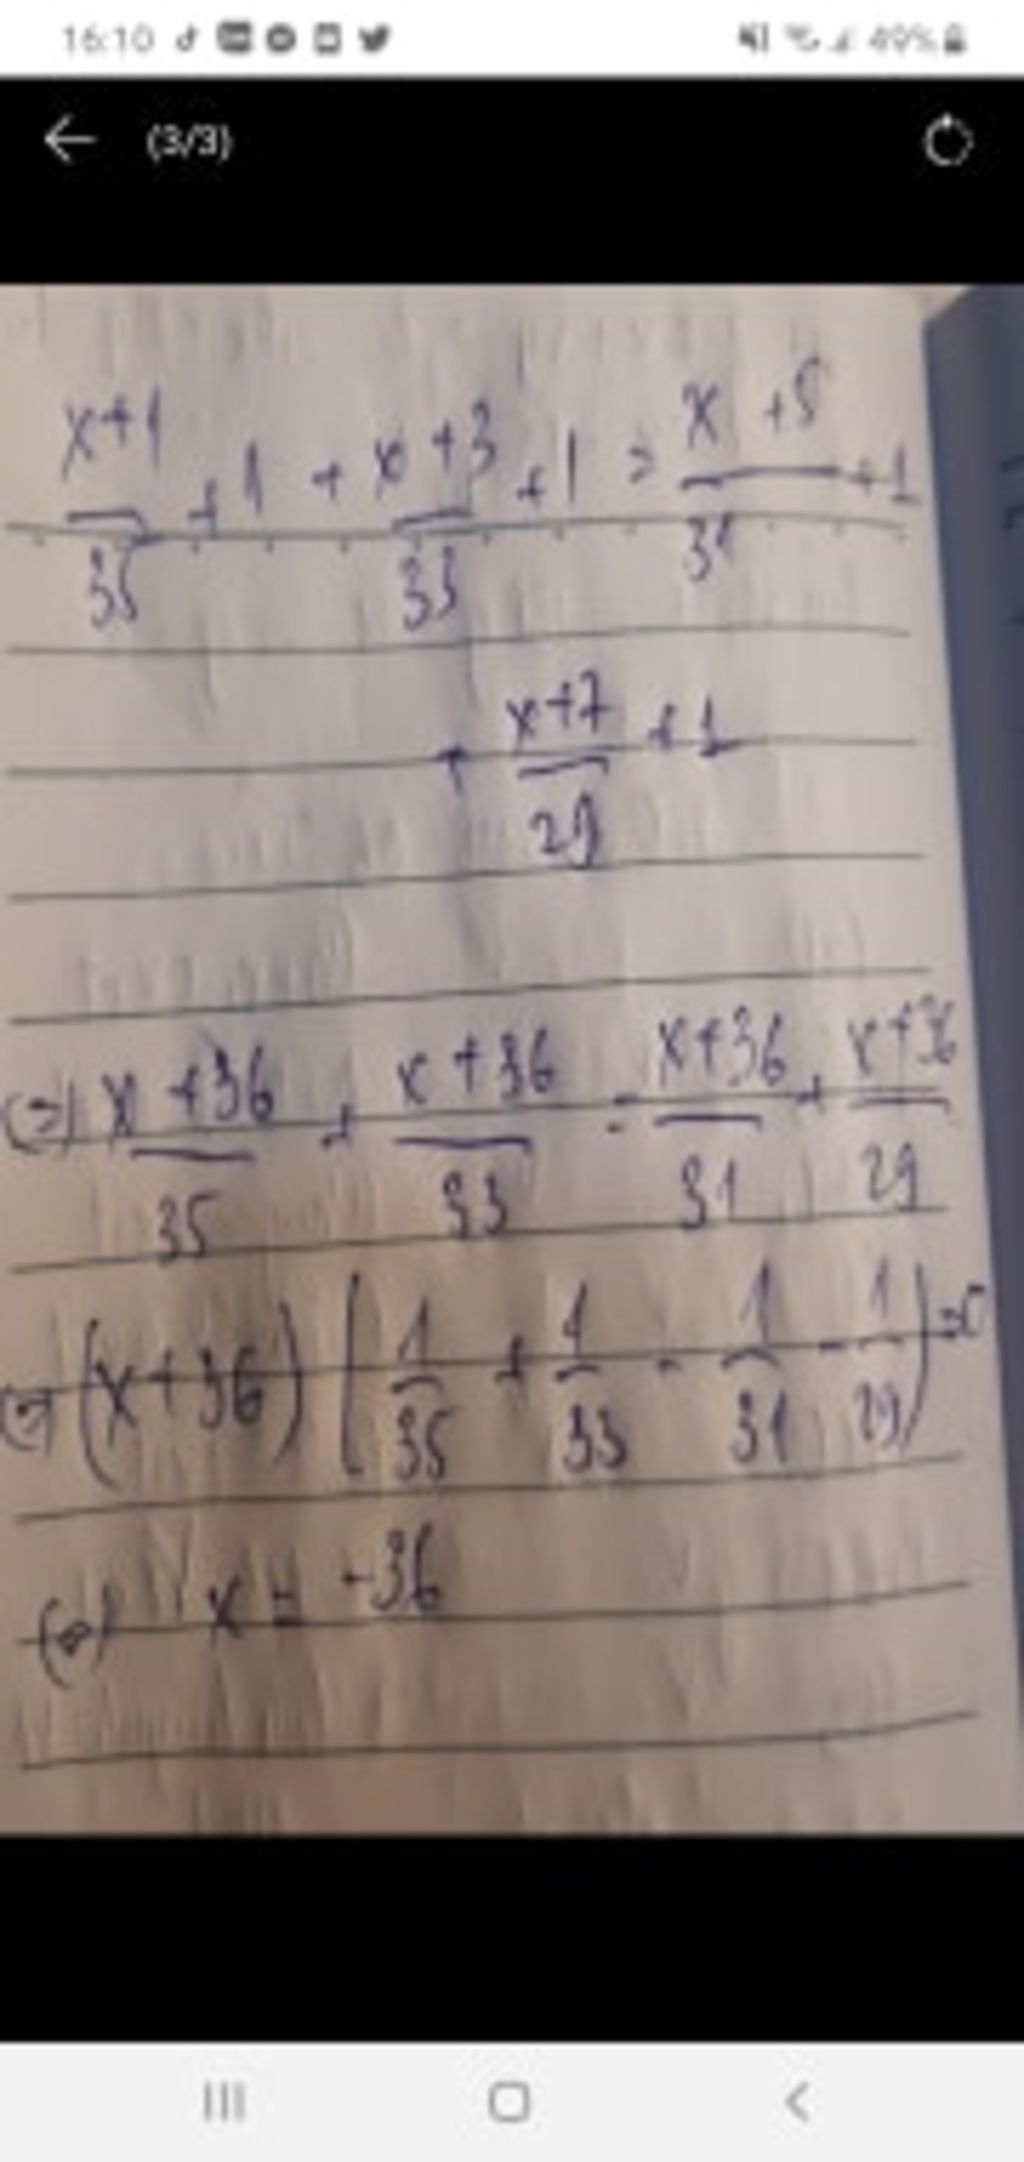 16:10 49%
(3/3)
x+1/35 + 1 + x+3/33 + 1 = x+5/31 + 1
+ x+7/29 + 1
(=) x+36/35 + x+36/33 = x+36/31 + x+36/29
(=) (x+36) (1/35 + 1/33 - 1/31 - 1/29) = 0
(=) x = -36